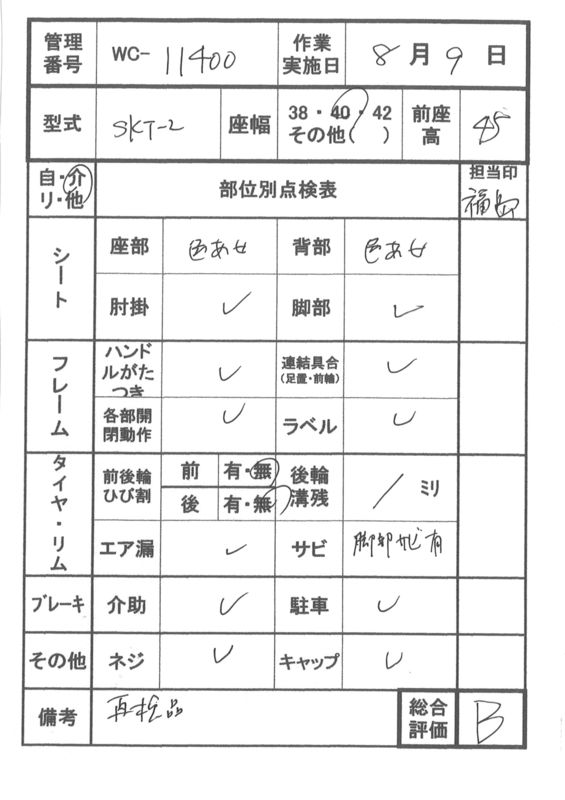 管理番号 WC- 11400 作業実施日 8月9日
型式 SKT-2 座幅 38・40・42 その他( ) 前座高 45
自・介 リ・他 部位別点検表 担当印 福島
シート 座部 色あせ 背部 色あせ
肘掛 ✓ 脚部 ✓
フレーム ハンドルがたつき ✓ 連結具合 (足置・前輪) ✓
各部開閉動作 ✓ ラベル ✓
タイヤ・リム 前後輪ひび割 前 有・無 後輪溝残 / ミリ
後 有・無
エア漏 ✓ サビ 脚部サビ有
ブレーキ 介助 ✓ 駐車 ✓
その他 ネジ ✓ キャップ ✓
備考 再検品 総合評価 B